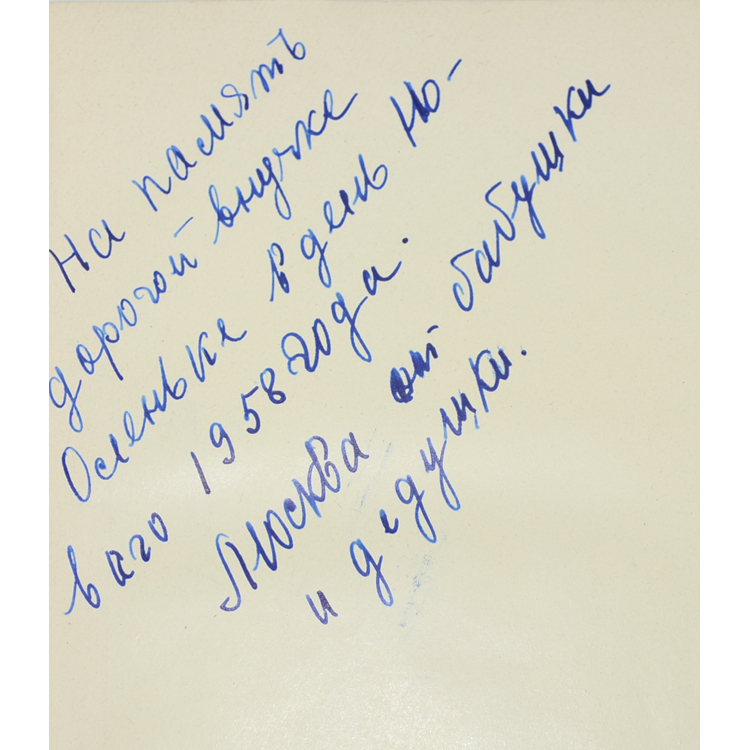 На память
дорогой внучке
Осеньке в день Но-
ваго 1958 года.
Москва от бабушки
и дедушки.